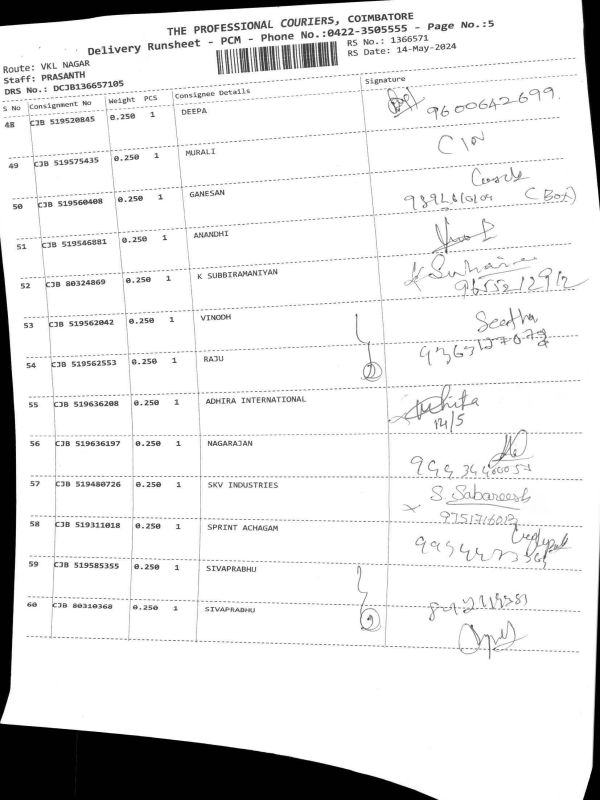 THE PROFESSIONAL COURIERS, COIMBATORE
Delivery Runsheet - PCM - Phone No.:0422-3505555 - Page No.:5
Route: VKL NAGAR
RS No.: 1366571
Staff: PRASANTH
RS Date: 14-May-2024
DRS No.: DCJB136657105
S No Consignment No Weight PCS Consignee Details Signature
48 CJB 519520845 0.250 1 DEEPA 9600642699.
49 CJB 519575435 0.250 1 MURALI
50 CJB 519560408 0.250 1 GANESAN
(Box)
51 CJB 519546881 0.250 1 ANANDHI
52 CJB 80324869 0.250 1 K SUBBIRAMANIYAN
9655212912
53 CJB 519562042 0.250 1 VINODH Seetha
54 CJB 519562553 0.250 1 RAJU
55 CJB 519636208 0.250 1 ADHIRA INTERNATIONAL
14/5
56 CJB 519636197 0.250 1 NAGARAJAN
57 CJB 519480726 0.250 1 SKV INDUSTRIES S. Sabareesh
58 CJB 519311018 0.250 1 SPRINT ACHAGAM
59 CJB 519585355 0.250 1 SIVAPRABHU
60 CJB 80310368 0.250 1 SIVAPRABHU